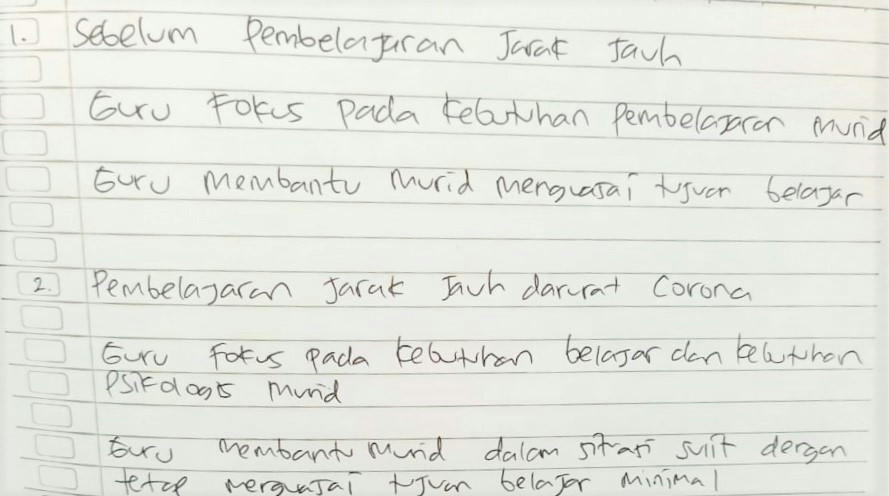 1. Sebelum Pembelajaran Jarak Jauh
Guru Fokus pada kebutuhan Pembelajaran Murid
Guru Membantu Murid menguasai tujuan belajar
2. Pembelajaran Jarak Jauh darurat Corona
Guru Fokus pada kebutuhan belajar dan kebutuhan
Psikologis Murid
Guru Membantu Murid dalam situasi sulit dengan
tetap menguasai tujuan belajar Minimal